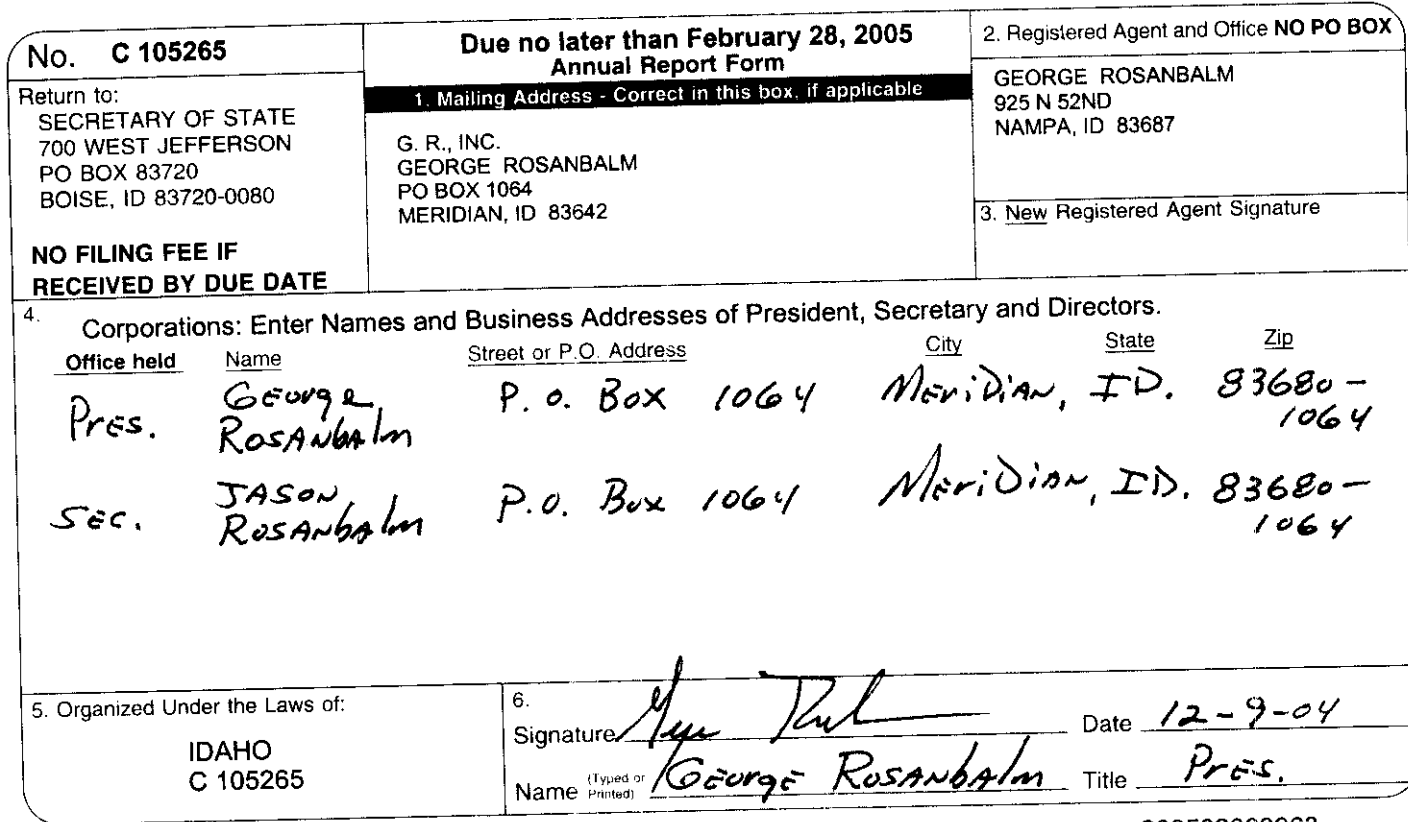 No. C 105265
Return to:
SECRETARY OF STATE
700 WEST JEFFERSON
PO BOX 83720
BOISE, ID 83720-0080
NO FILING FEE IF
RECEIVED BY DUE DATE
Due no later than February 28, 2005
Annual Report Form
1. Mailing Address - Correct in this box, if applicable
G. R., INC.
GEORGE ROSANBALM
PO BOX 1064
MERIDIAN, ID 83642
2. Registered Agent and Office NO PO BOX
GEORGE ROSANBALM
925 N 52ND
NAMPA, ID 83687
3. New Registered Agent Signature
4. Corporations: Enter Names and Business Addresses of President, Secretary and Directors.
Office held Name Street or P.O. Address City State Zip
Pres. George Rosanbalm P.O. Box 1064 Meridian, ID. 83680-1064
Sec. Jason Rosanbalm P.O. Box 1064 Meridian, ID. 83680-1064
5. Organized Under the Laws of:
IDAHO
C 105265
6.
Signature Date 12-9-04
Name (Typed or Printed) George Rosanbalm Title Pres.